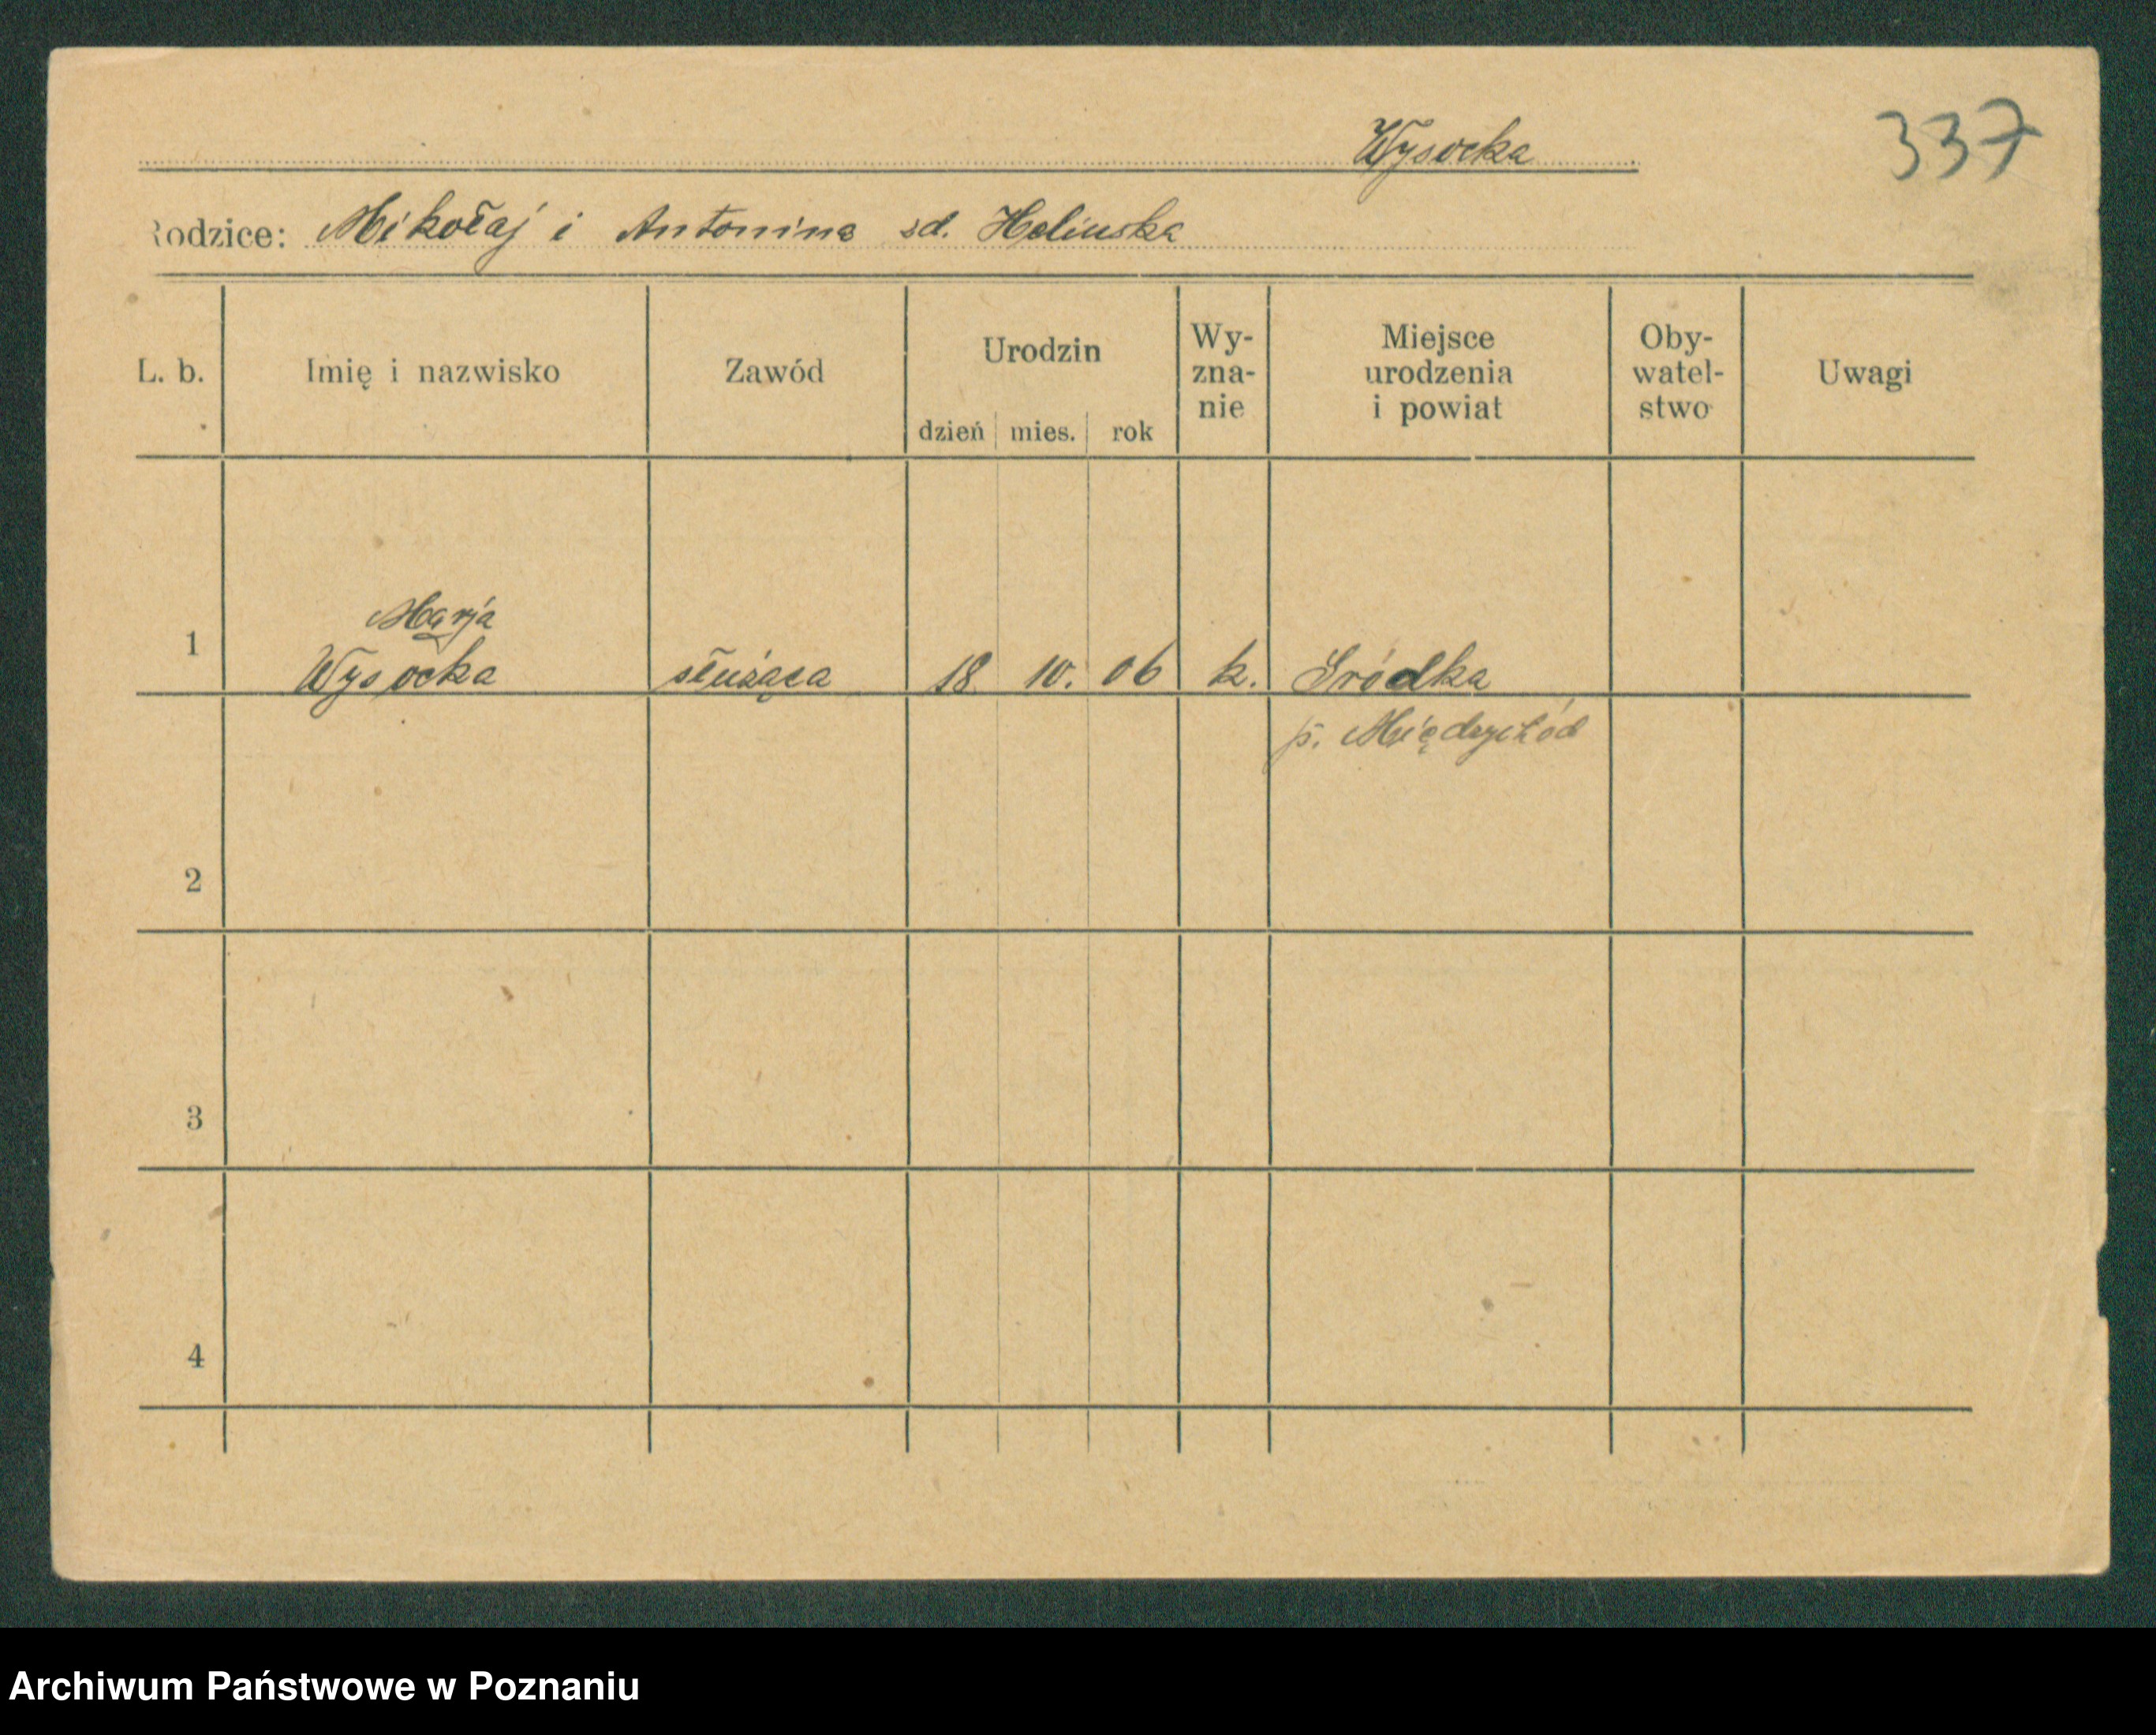 Wysocka
337
Rodzice: Mikołaj i Antonina zd. Helińska
L. b.
Imię i nazwisko
Zawód
Urodzin
dzień mies. rok
Wy-
zna-
nie
Miejsce
urodzenia
i powiat
Oby-
watel-
stwo
Uwagi
Marja
1 Wysocka służąca 18 10. 06 k. Śródka
p. Międzychód
2
3
4
Archiwum Państwowe w Poznaniu